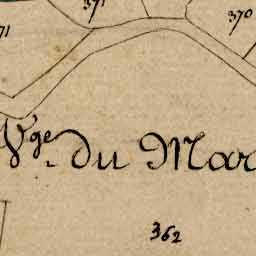 371
370
71
Vge. du Mar
362